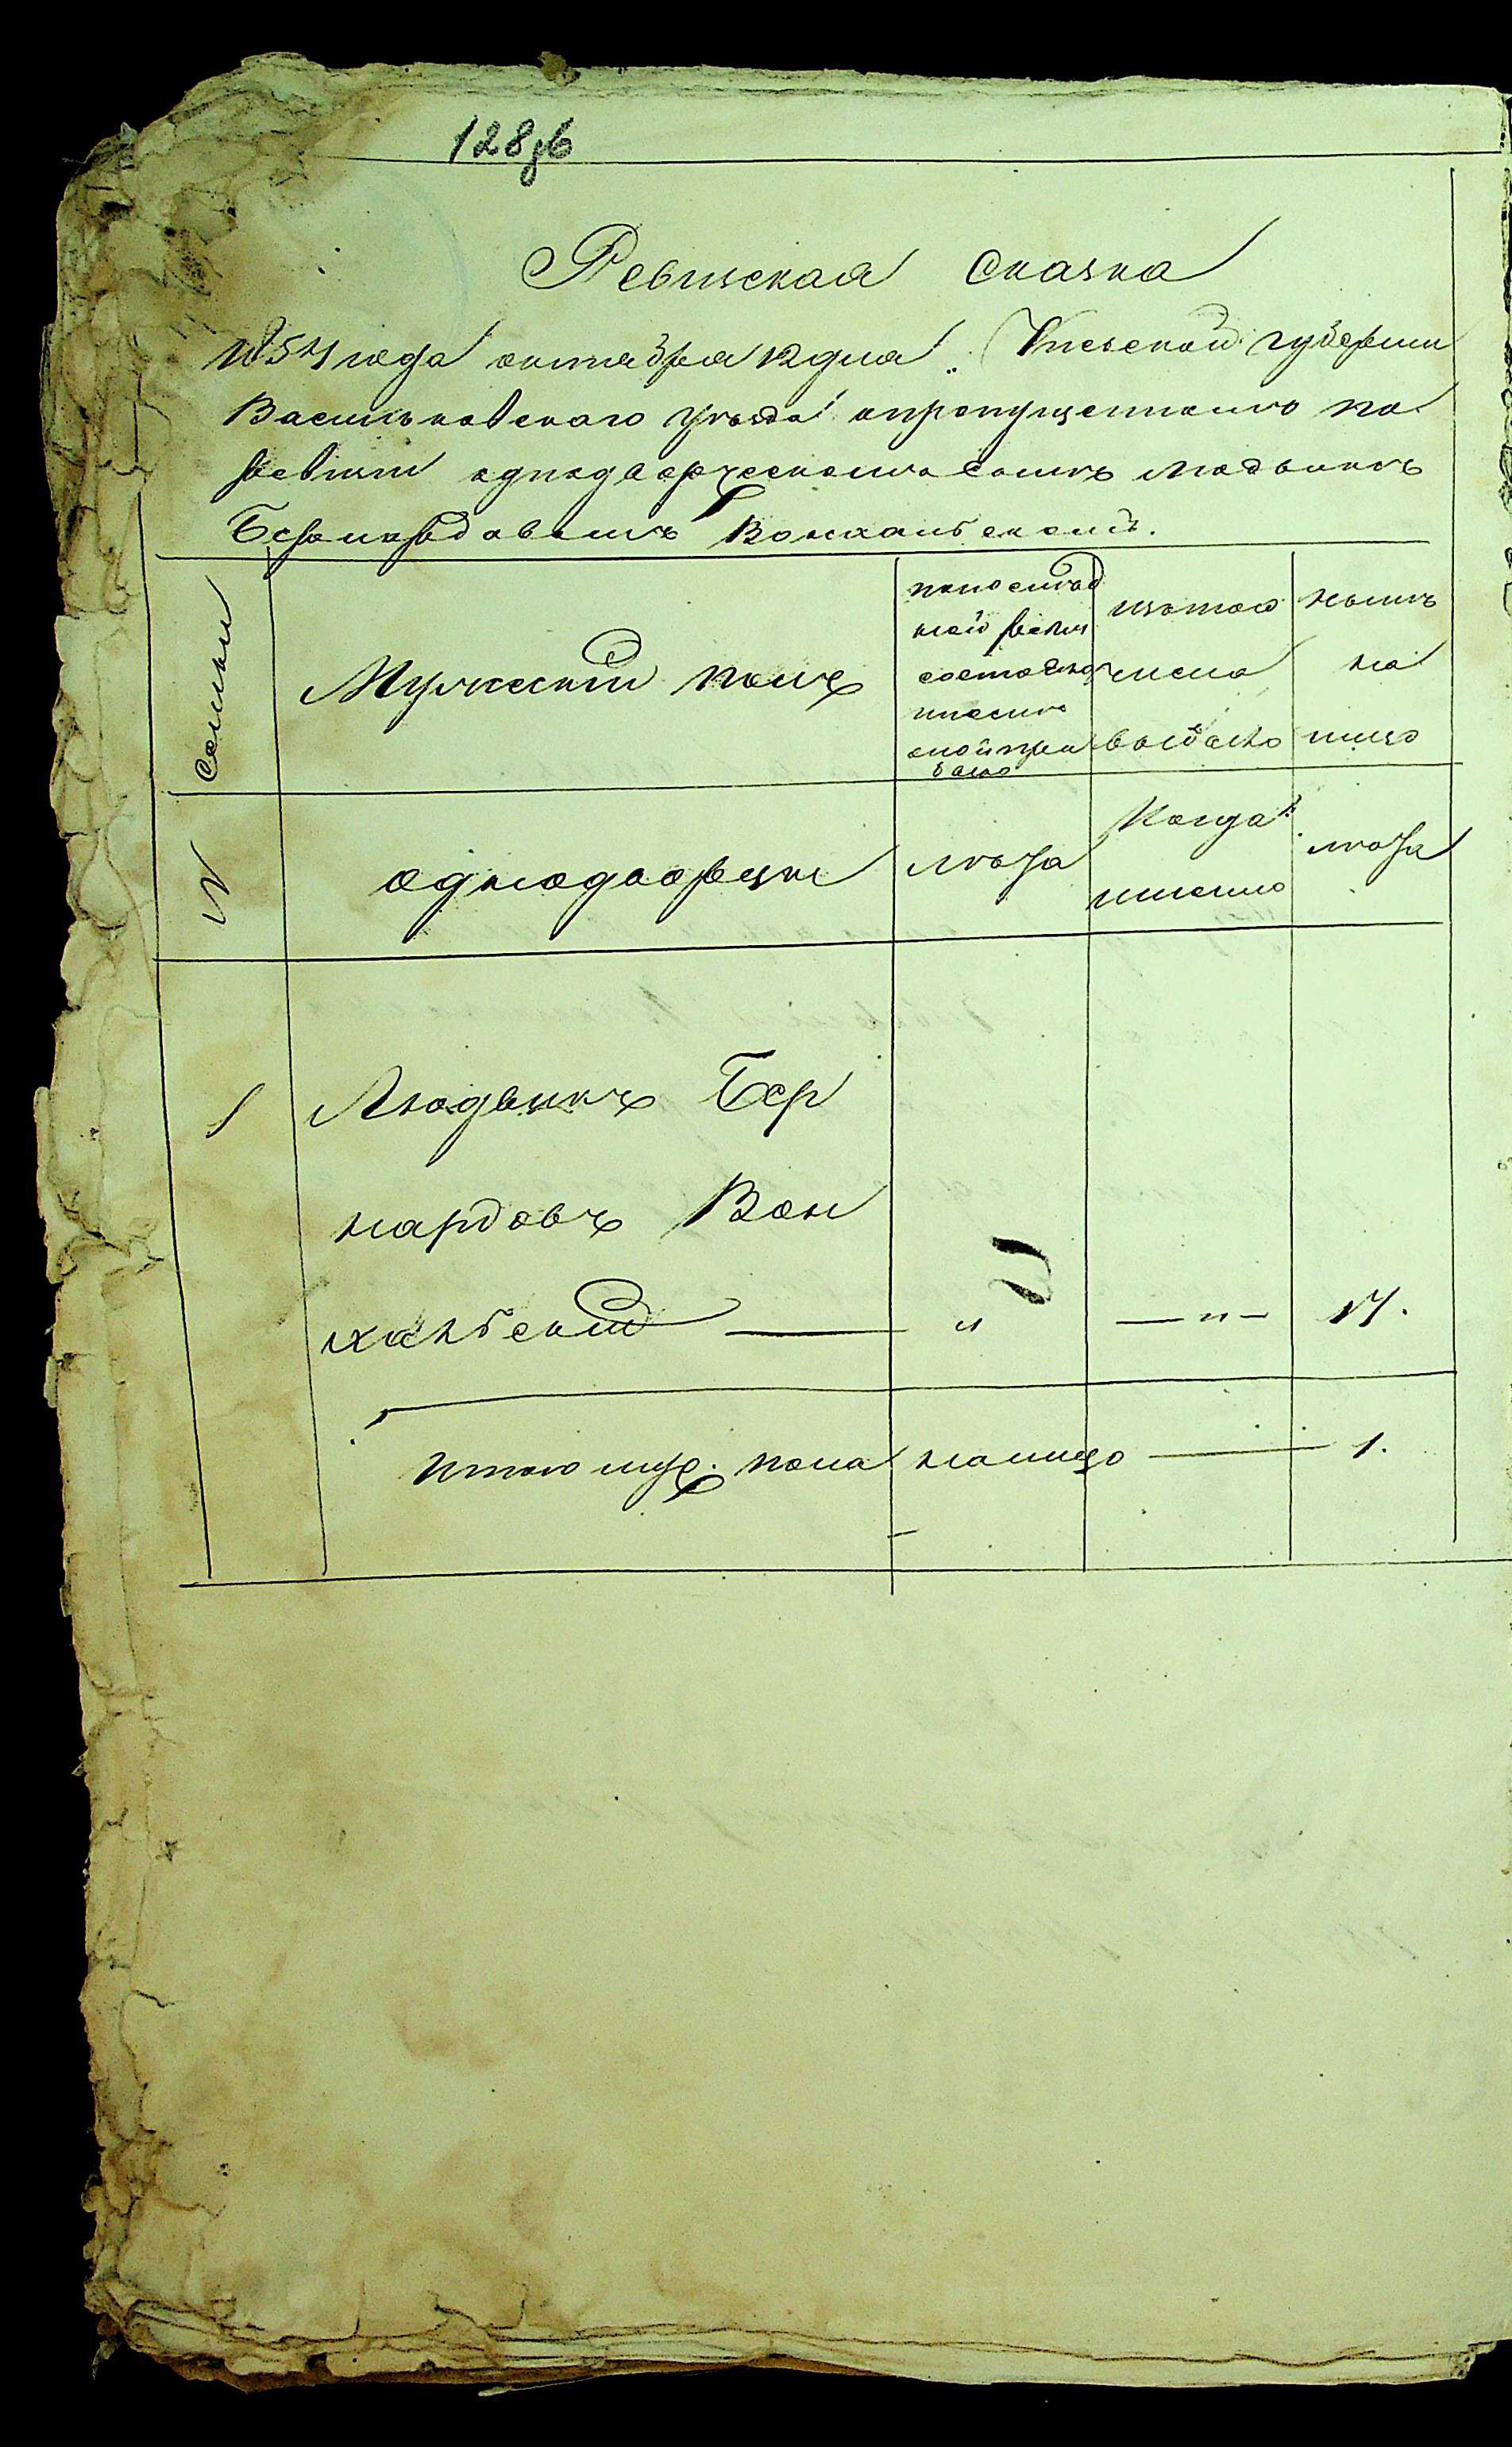 128об
Ревизская Сказка
года октября 12 дня. Киевской губернии
Васильковского уезда опропущенномъ по
ревизии однодворческомъ сыне Людвике
Бернардовомъ
Семьи
Мужеский полъ
по последней ревизии состояло и после оной прибыло
изътого числа выбыло
ныне на лицо
N
однодворцы
лета
Когда именно
лета
1
Людвикъ Бер
нардовъ Вон
" — " — 17.
Итого муж. пола налицо — 1.